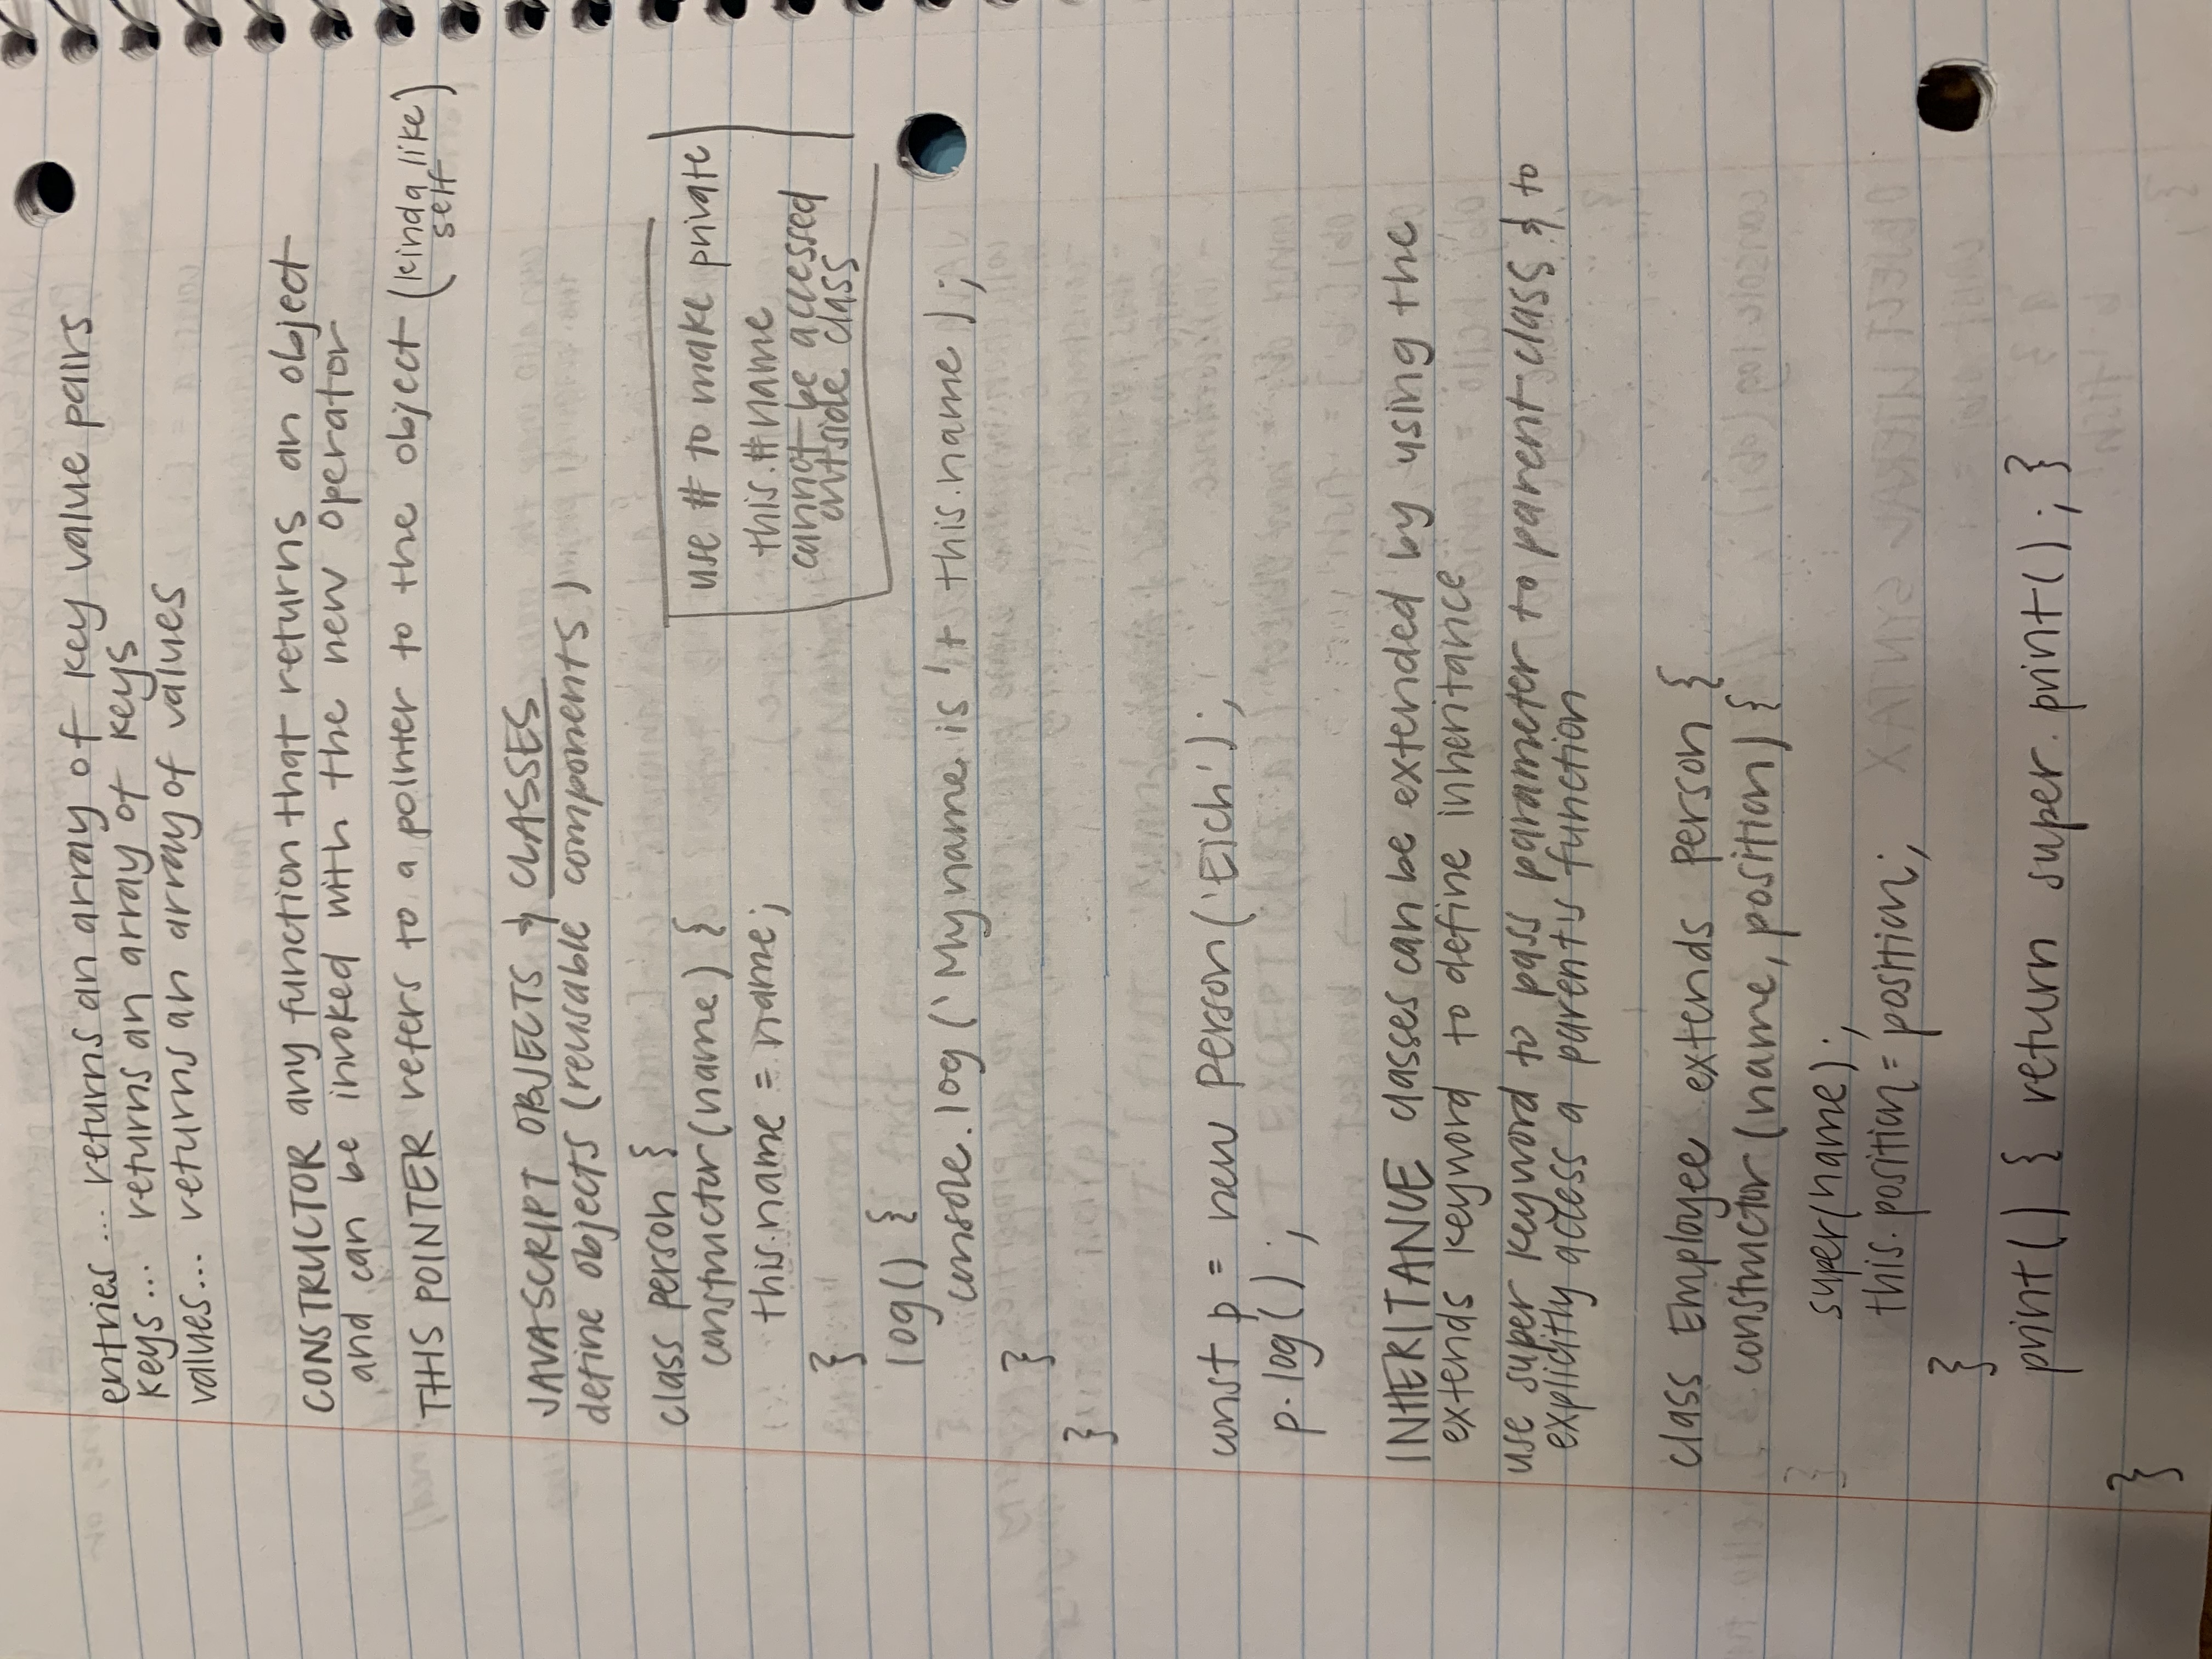 entries ... returns an array of key value pairs
keys ... returns an array of keys
values ... returns an array of values
CONSTRUCTOR any function that returns an object
and can be invoked with the new operator
THIS POINTER refers to a pointer to the object (kinda like
self)
JAVASCRIPT OBJECTS & CLASSES
define objects (reusable components)
class person {
constructor(name) {
this.name = name;
}
log() {
console.log('My name is '+ this.name);
}
}
use # to make private
this.#name
cannot be accessed
outside class
const p = new person('Eich');
p.log();
INHERITANCE classes can be extended by using the
extends keyword to define inheritance
use super keyword to pass parameter to parent class & to
explicitly access a parent's function
class Employee extends person {
constructor(name, position) {
super(name);
this.position = position;
}
print() { return super.print(); }
}